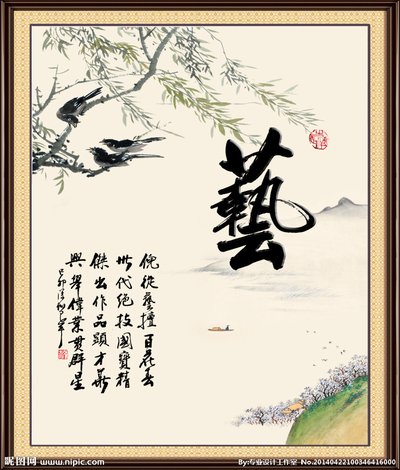 藝
從藝擅百花春
世代絕技國寶精
傑出作品顯才華
與舉偉業貫群星
己卯
昵图网 www.nipic.com
By:专业设计工作室 No:20140422100346416000